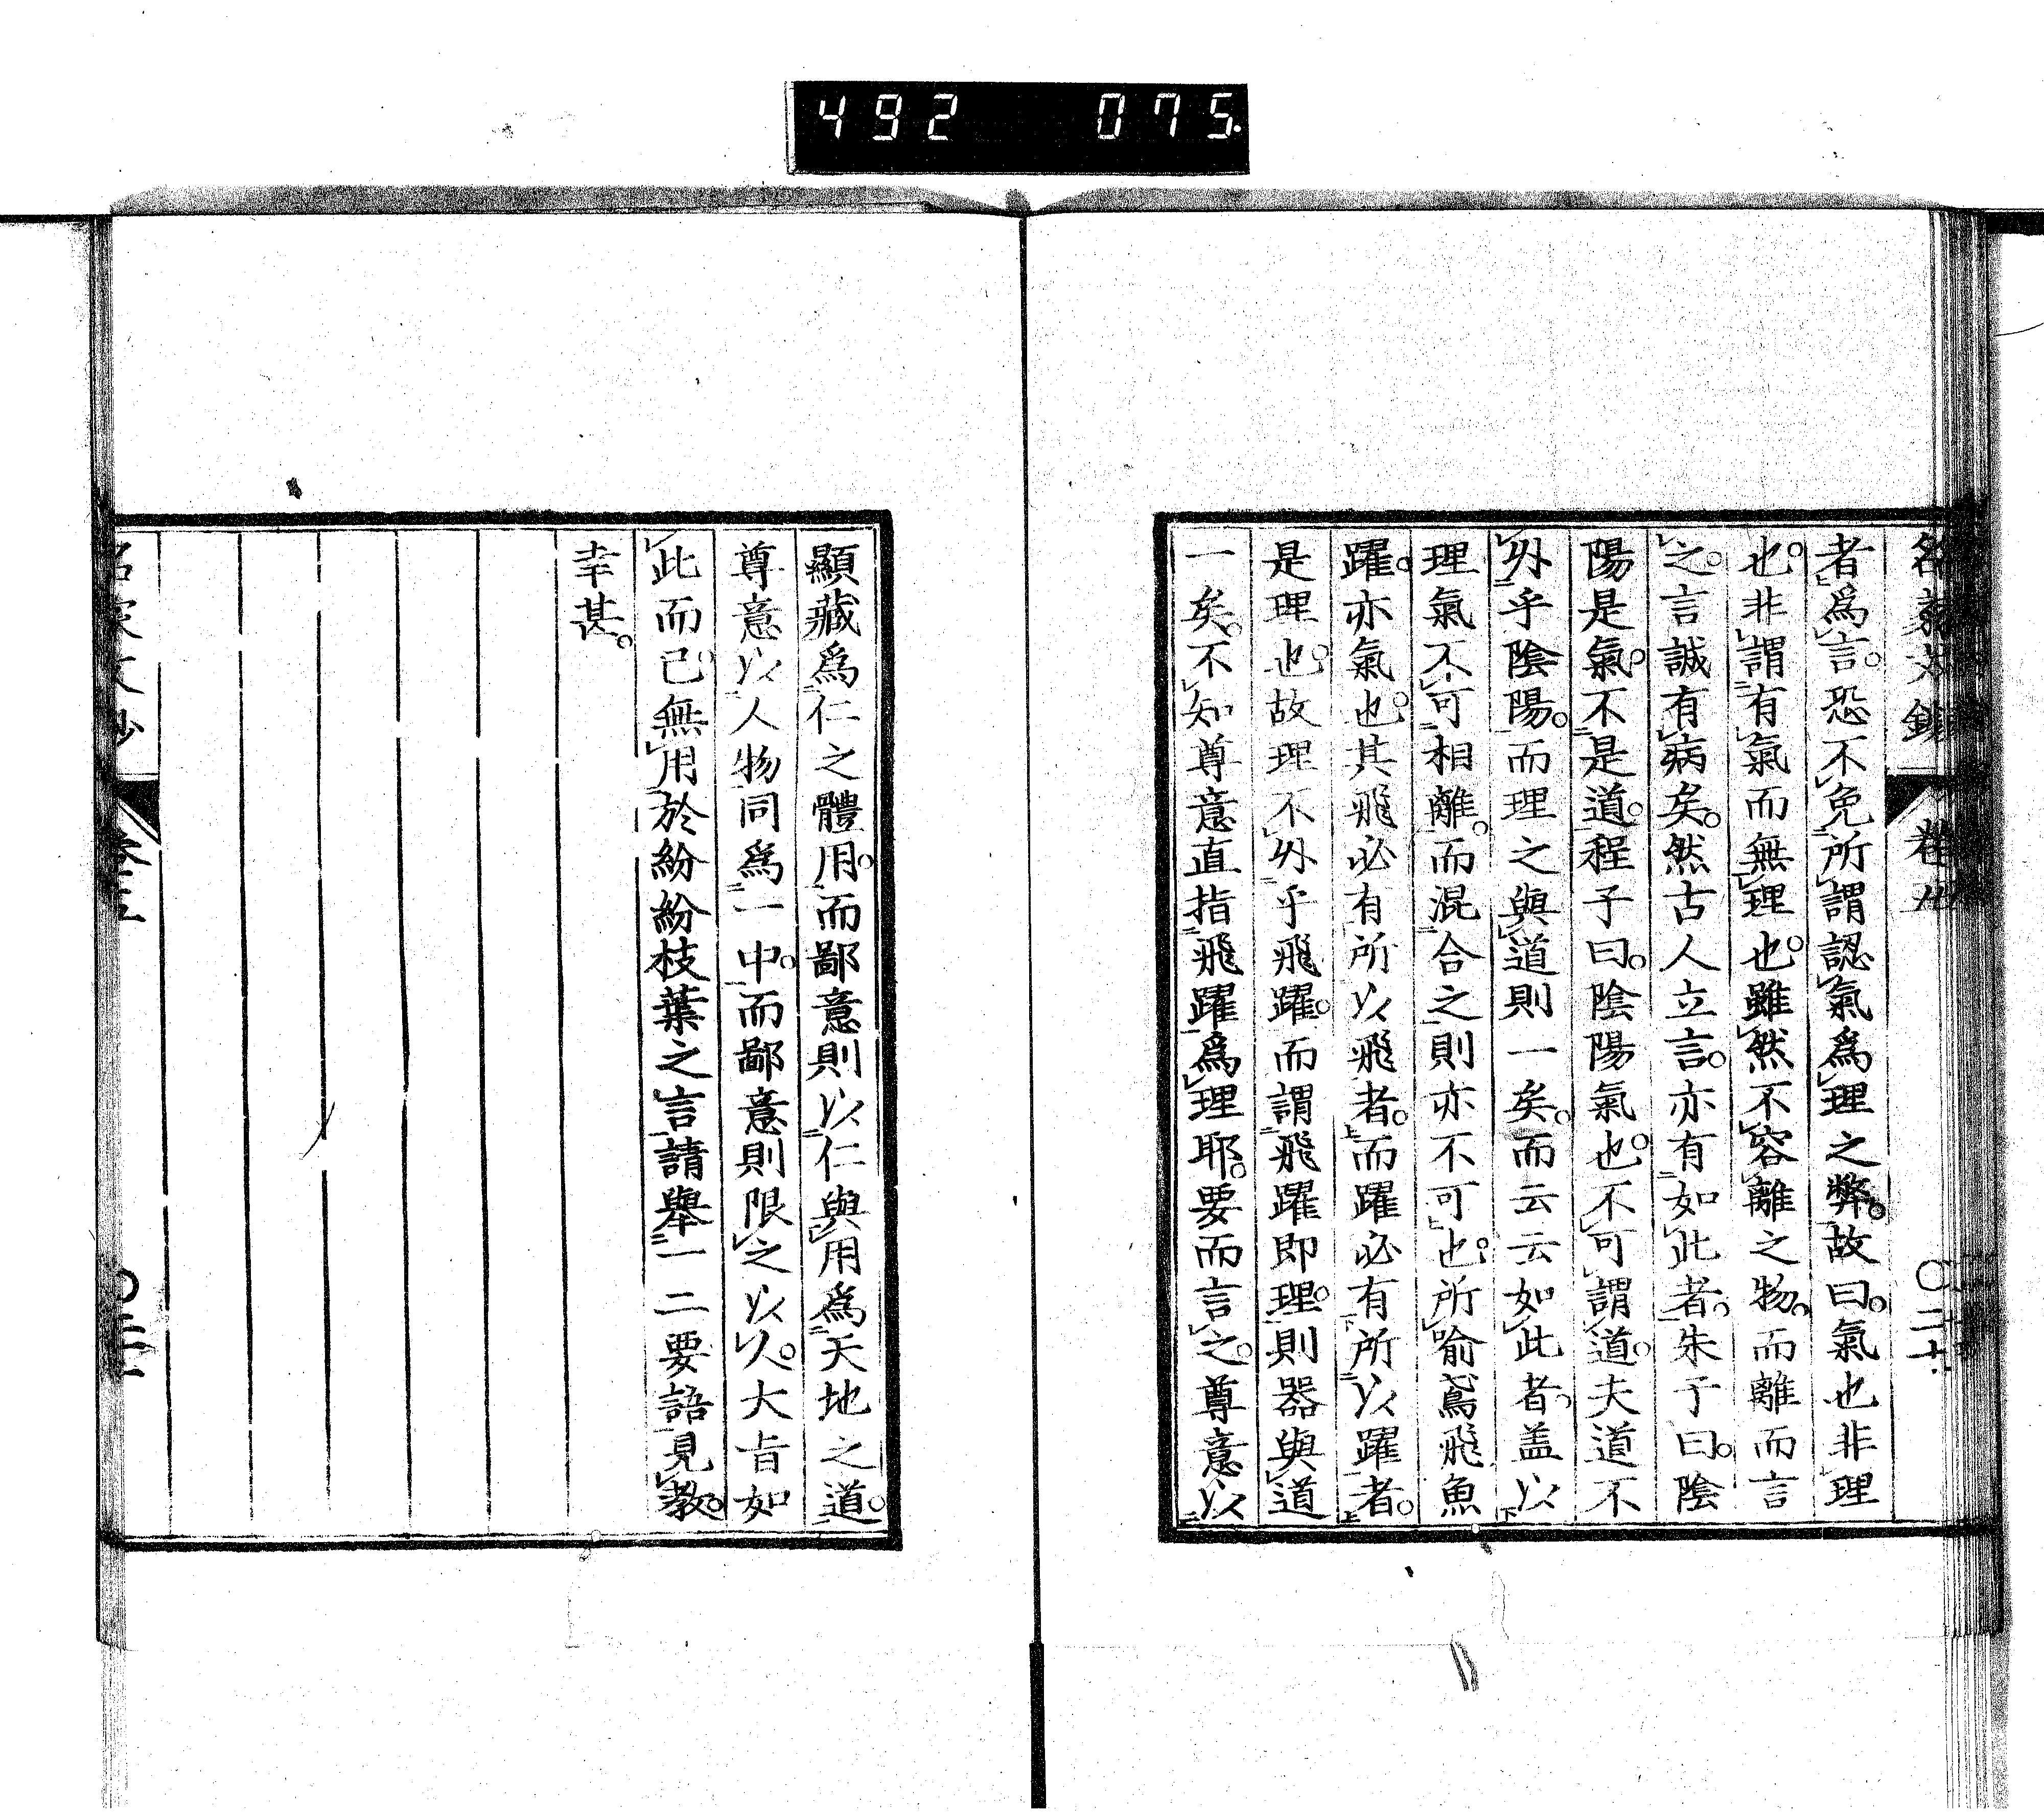 492 075
者為言。恐不免所謂認氣為理之弊。故曰。氣也非理
也。非謂有氣而無理也。雖然不容離之物。而離而言
之。言誠有病矣。然古人立言。亦有如此者。朱子曰。陰
陽是氣。不是道。程子曰。陰陽氣也。不可謂道。夫道不
外乎陰陽。而理之與道則一矣。而云云如此者。蓋以
理氣不可相離。而混合之則亦不可也。所喻鳶飛魚
躍。亦氣也。其飛必有所以飛者。而躍必有所以躍者。
是理也。故理不外乎飛躍。而謂飛躍即理。則器與道
一矣。不知尊意直指飛躍為理耶。要而言之。尊意以
顯藏為仁之體用。而鄙意則以仁與用為天地之道。
尊意以人物同為一中。而鄙意則限之以人。大旨如
此而已。無用於紛紛枝葉之言。請舉一二要語見教。
幸甚。